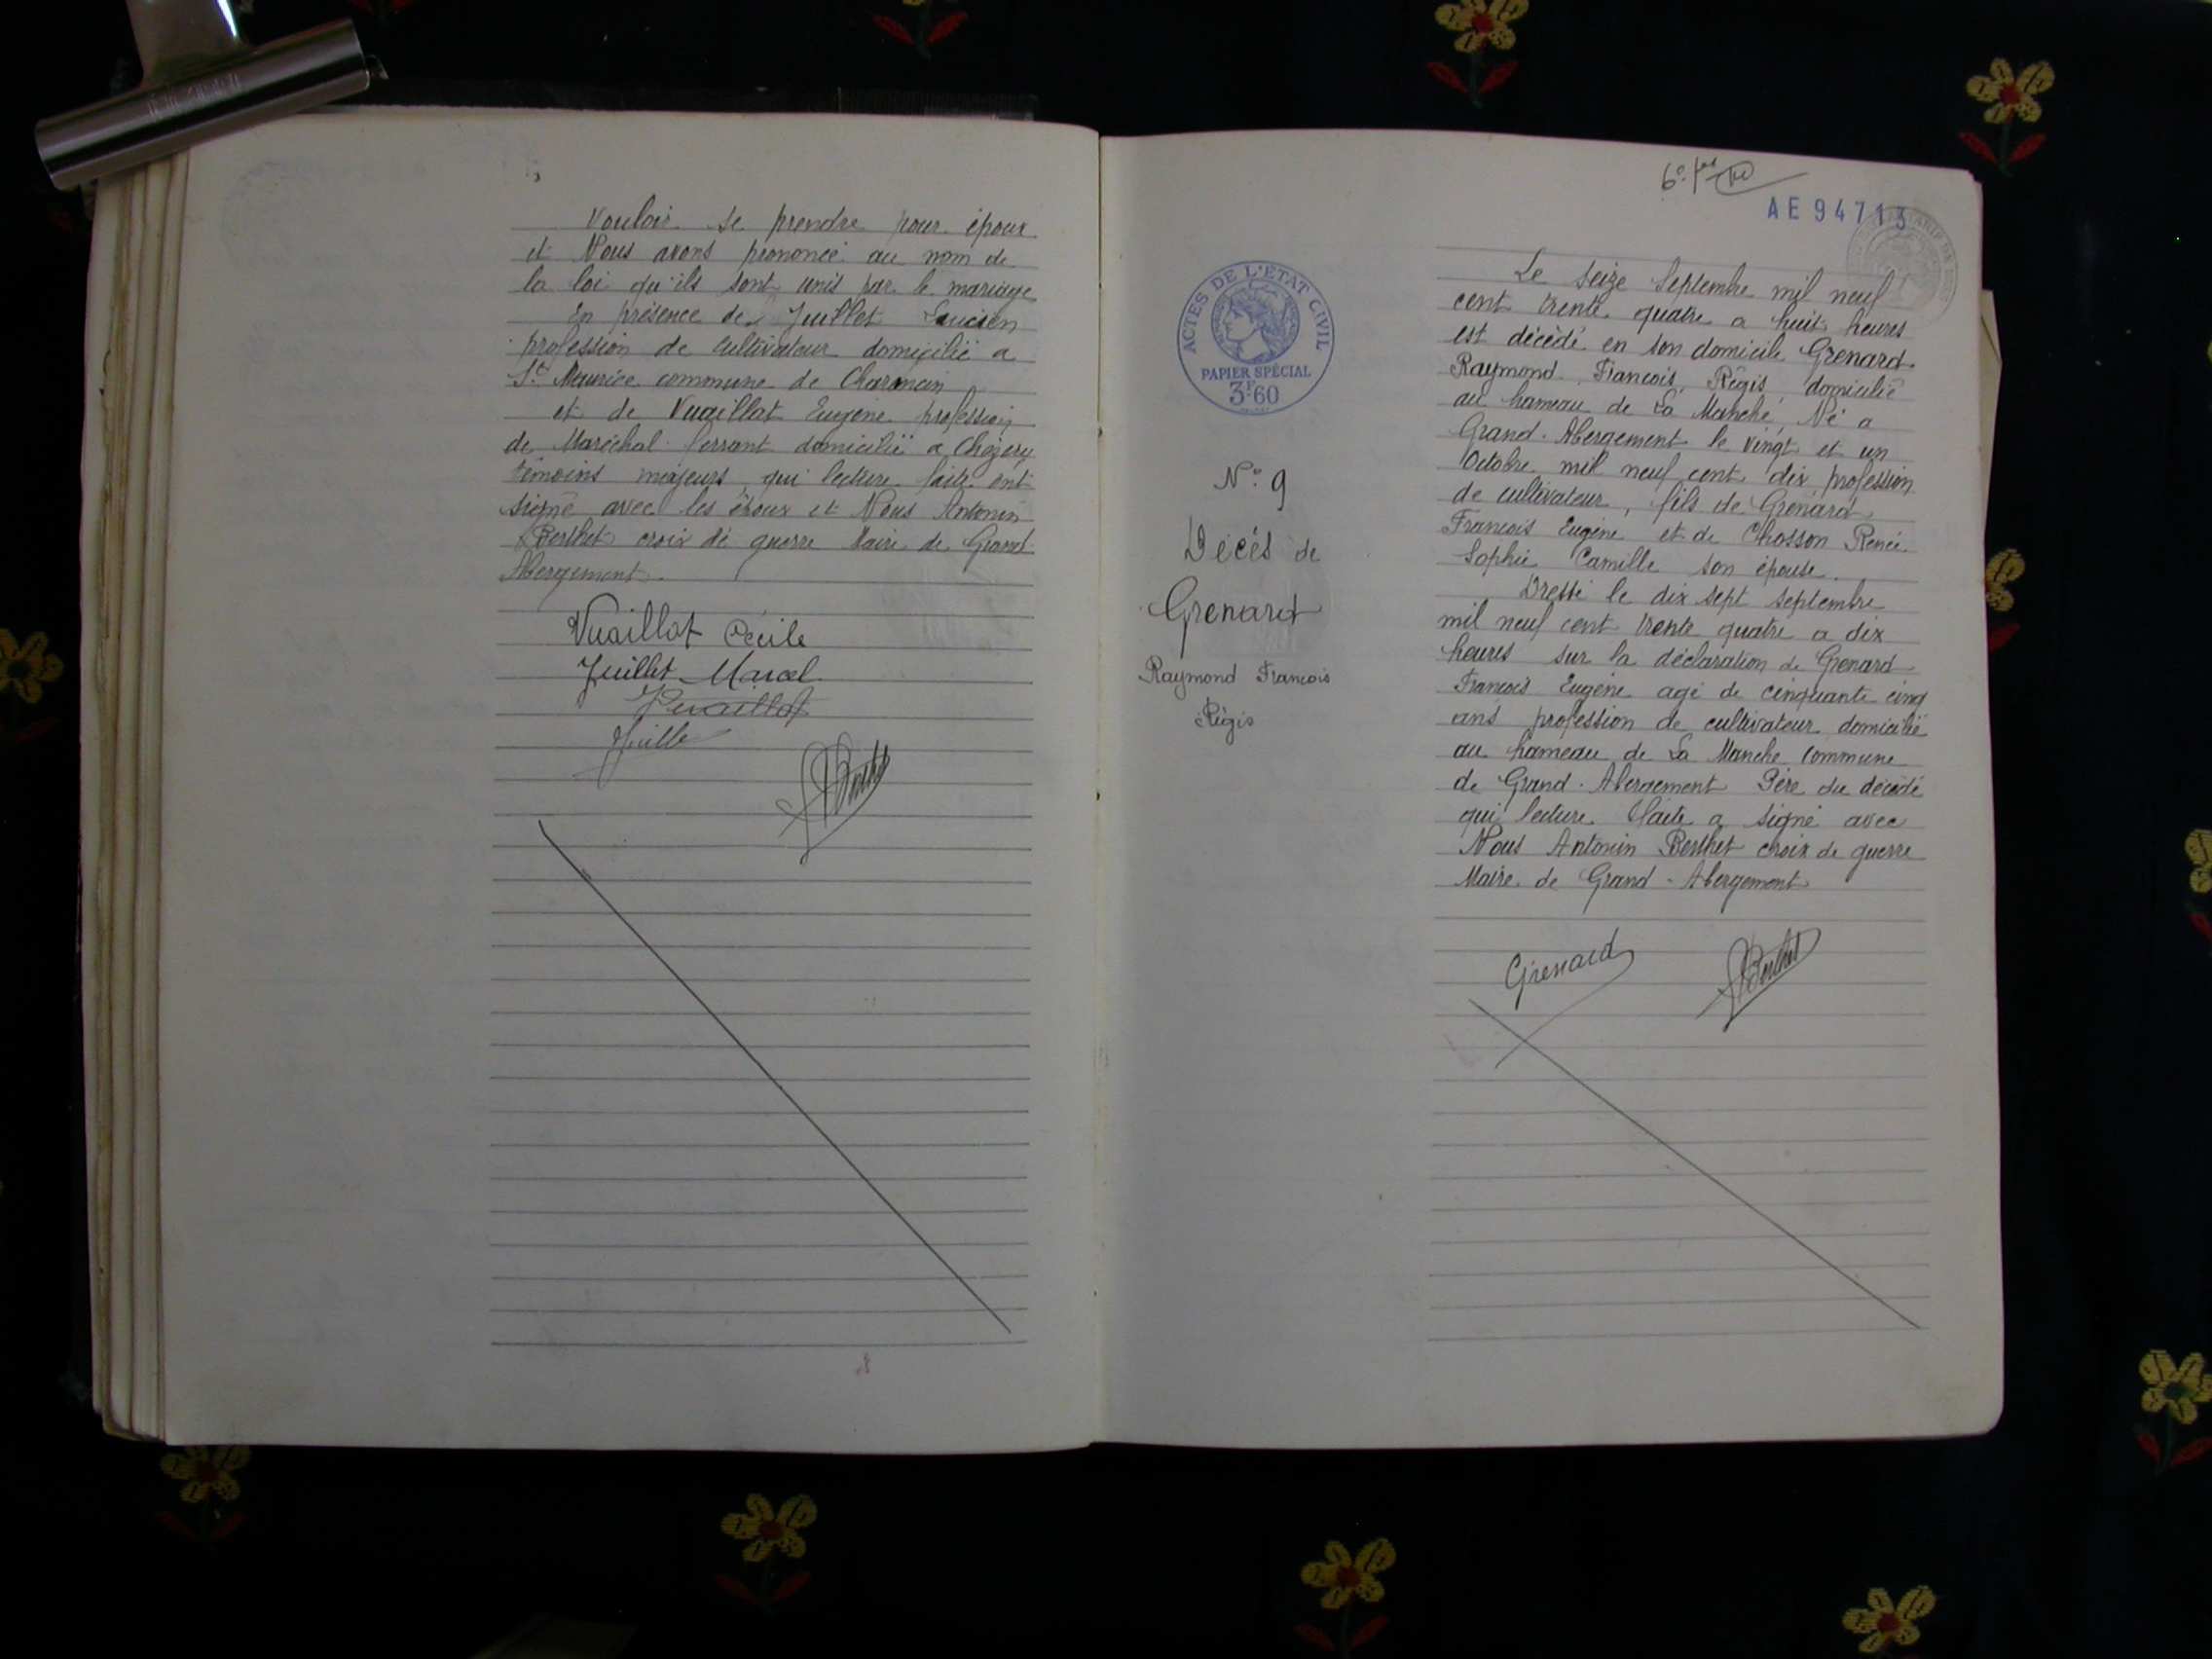 Vouloir se prendre pour époux
et Nous avons prononcé au nom de
la loi qu'ils sont unis par le mariage
En présence de Juillet Lucien
profession de cultivateur domicilié a
St Maurice commune de Charancin
et de Vuaillat Eugène profession
de Maréchal ferrant domicilié a Chézery
témoins majeurs, qui lecture faite ont
signé avec les époux et Nous Antonin
Berthet croix de guerre Maire de Grand
Abergement.
Vuaillat Cécile
Juillet Marcel
Vuaillat
Juillet
Berthet
AE 94713
ACTES DE L'ÉTAT CIVIL
PAPIER SPÉCIAL
3F60
N° 9
Décés de
Grenard
Raymond Francois
Régis
Le seize Septembre mil neuf
cent trente quatre a huit heures
est décédé en son domicile Grenard
Raymond, Francois, Régis, domicilié
au hameau de La Manche, Né a
Grand-Abergement le vingt et un
Octobre mil neuf cent dix profession
de cultivateur, fils de Grenard
Francois Eugène et de Chosson Renée
Sophie Camille son épouse.
Dressé le dix sept septembre
mil neuf cent trente quatre a dix
heures sur la déclaration de Grenard
Francois Eugène agé de cinquante cinq
ans profession de cultivateur domicilié
au hameau de La Manche commune
de Grand-Abergement Père du décédé
qui lecture faite a signé avec
Nous Antonin Berthet croix de guerre
Maire de Grand-Abergement
Grenard
Berthet